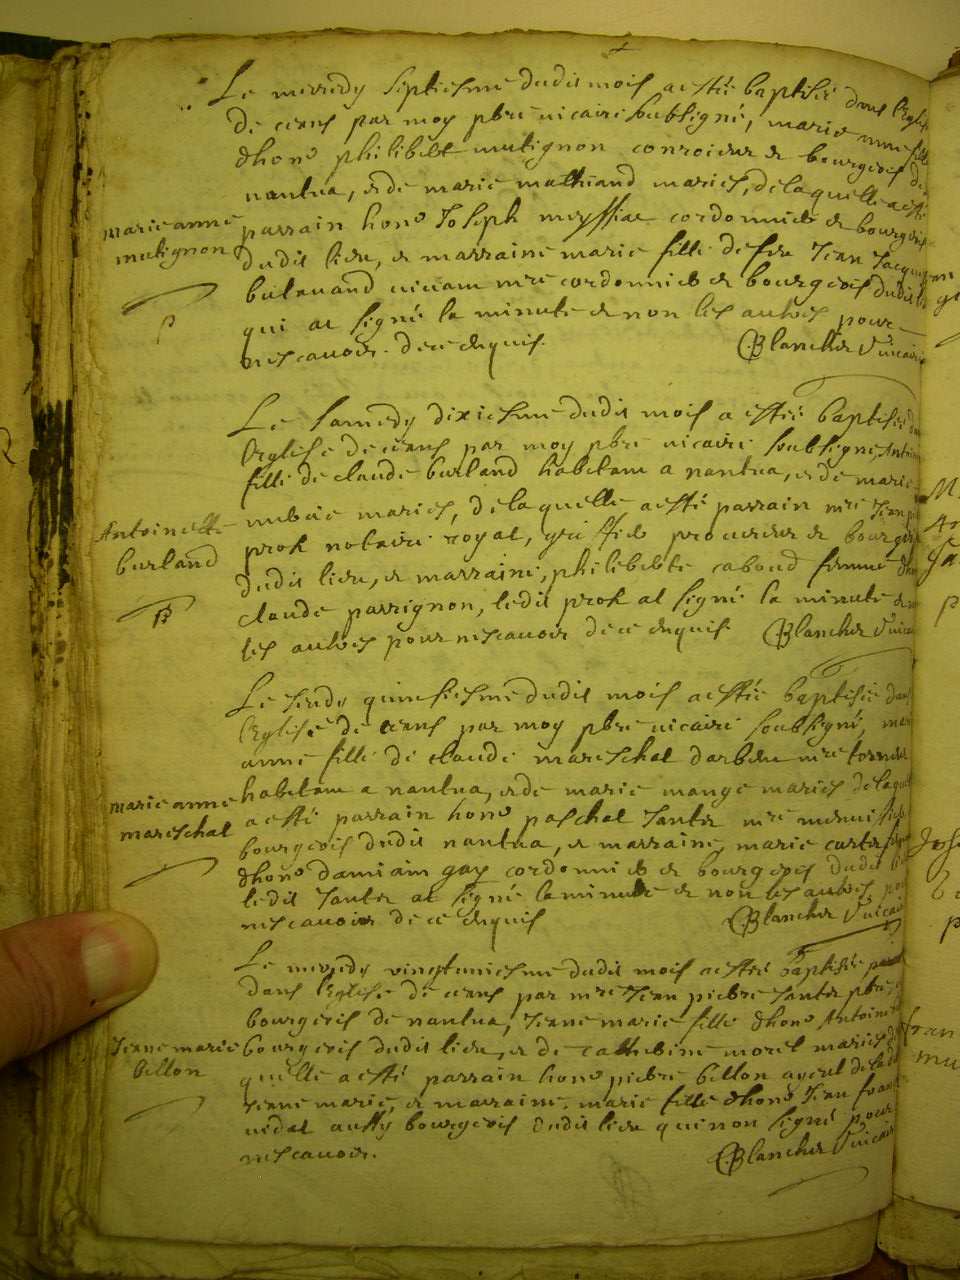 Le mercredy septiesme dudit mois a esté baptisée dans l'Eglise
de ceans par moy pbre vicaire soubsigné, marie anne fille
d'hon^e philibert mutignon conroieur et bourgeois de
nantua, et de marie mathiand mariés, de laquelle a esté
marie anne
mutignon
parrain hon^e Joseph meyssiat cordonnier et bourgeois
dudit lieu, et marraine marie fille de feu Jean Jacques
butavand vivant m^re cordonnier et bourgeois dudit lieu
qui at signé la minute et non les autres pour
ne scavoir. de ce enquis.
Blanchet Vicaire
Le samedy dixiesme dudit mois a esté baptisée dans
l'Eglise de ceans par moy pbre vicaire soubsigné, Antoin
fille de claude burland habitant a nantua, et de marie
Antoinette
burland
mariés, de laquelle a esté parrain m^re Jean
prost notaire royal, greffier procureur et bourgeois
dudit lieu, et marraine, philiberte caboud femme d'hon
claude parrignon, ledit prost at signé la minute et non
les autres pour ne scavoir de ce enquis
Blanchet Vicaire
Le jeudy quinsiesme dudit mois a esté baptisée dans
l'Eglise de ceans par moy pbre vicaire soubsigné, marie
anne fille de claude mareschal m^re
habitant a nantua, et de marie mange mariés de laquelle
marie anne
mareschal
a esté parrain hon^e paschal Jantet m^re menuisier
bourgeois dudit nantua, et marraine, marie
d'hon^e damiain gay cordonnier et bourgeois dudit lieu
ledit Jantet at signé la minute et non les autres pour
ne scavoir de ce enquis
Blanchet Vicaire
Le mercredy vingtuniesme dudit mois a esté baptisée
dans l'Eglise de ceans par m^re Jean pierre Jantet pbre,
bourgeois de nantua, Jeane marie fille d'hon^e Antoine
Jeane marie
billon
bourgeois dudit lieu, et de catherine morel mariés de la
quelle a esté parrain hon^e pierre billon ayeul de ladite
Jeane marie, et marraine. marie fille d'hon^e Jean
vidal aussy bourgeois dudit lieu qui n'on signé pour
ne scavoir.
Blanchet Vicaire